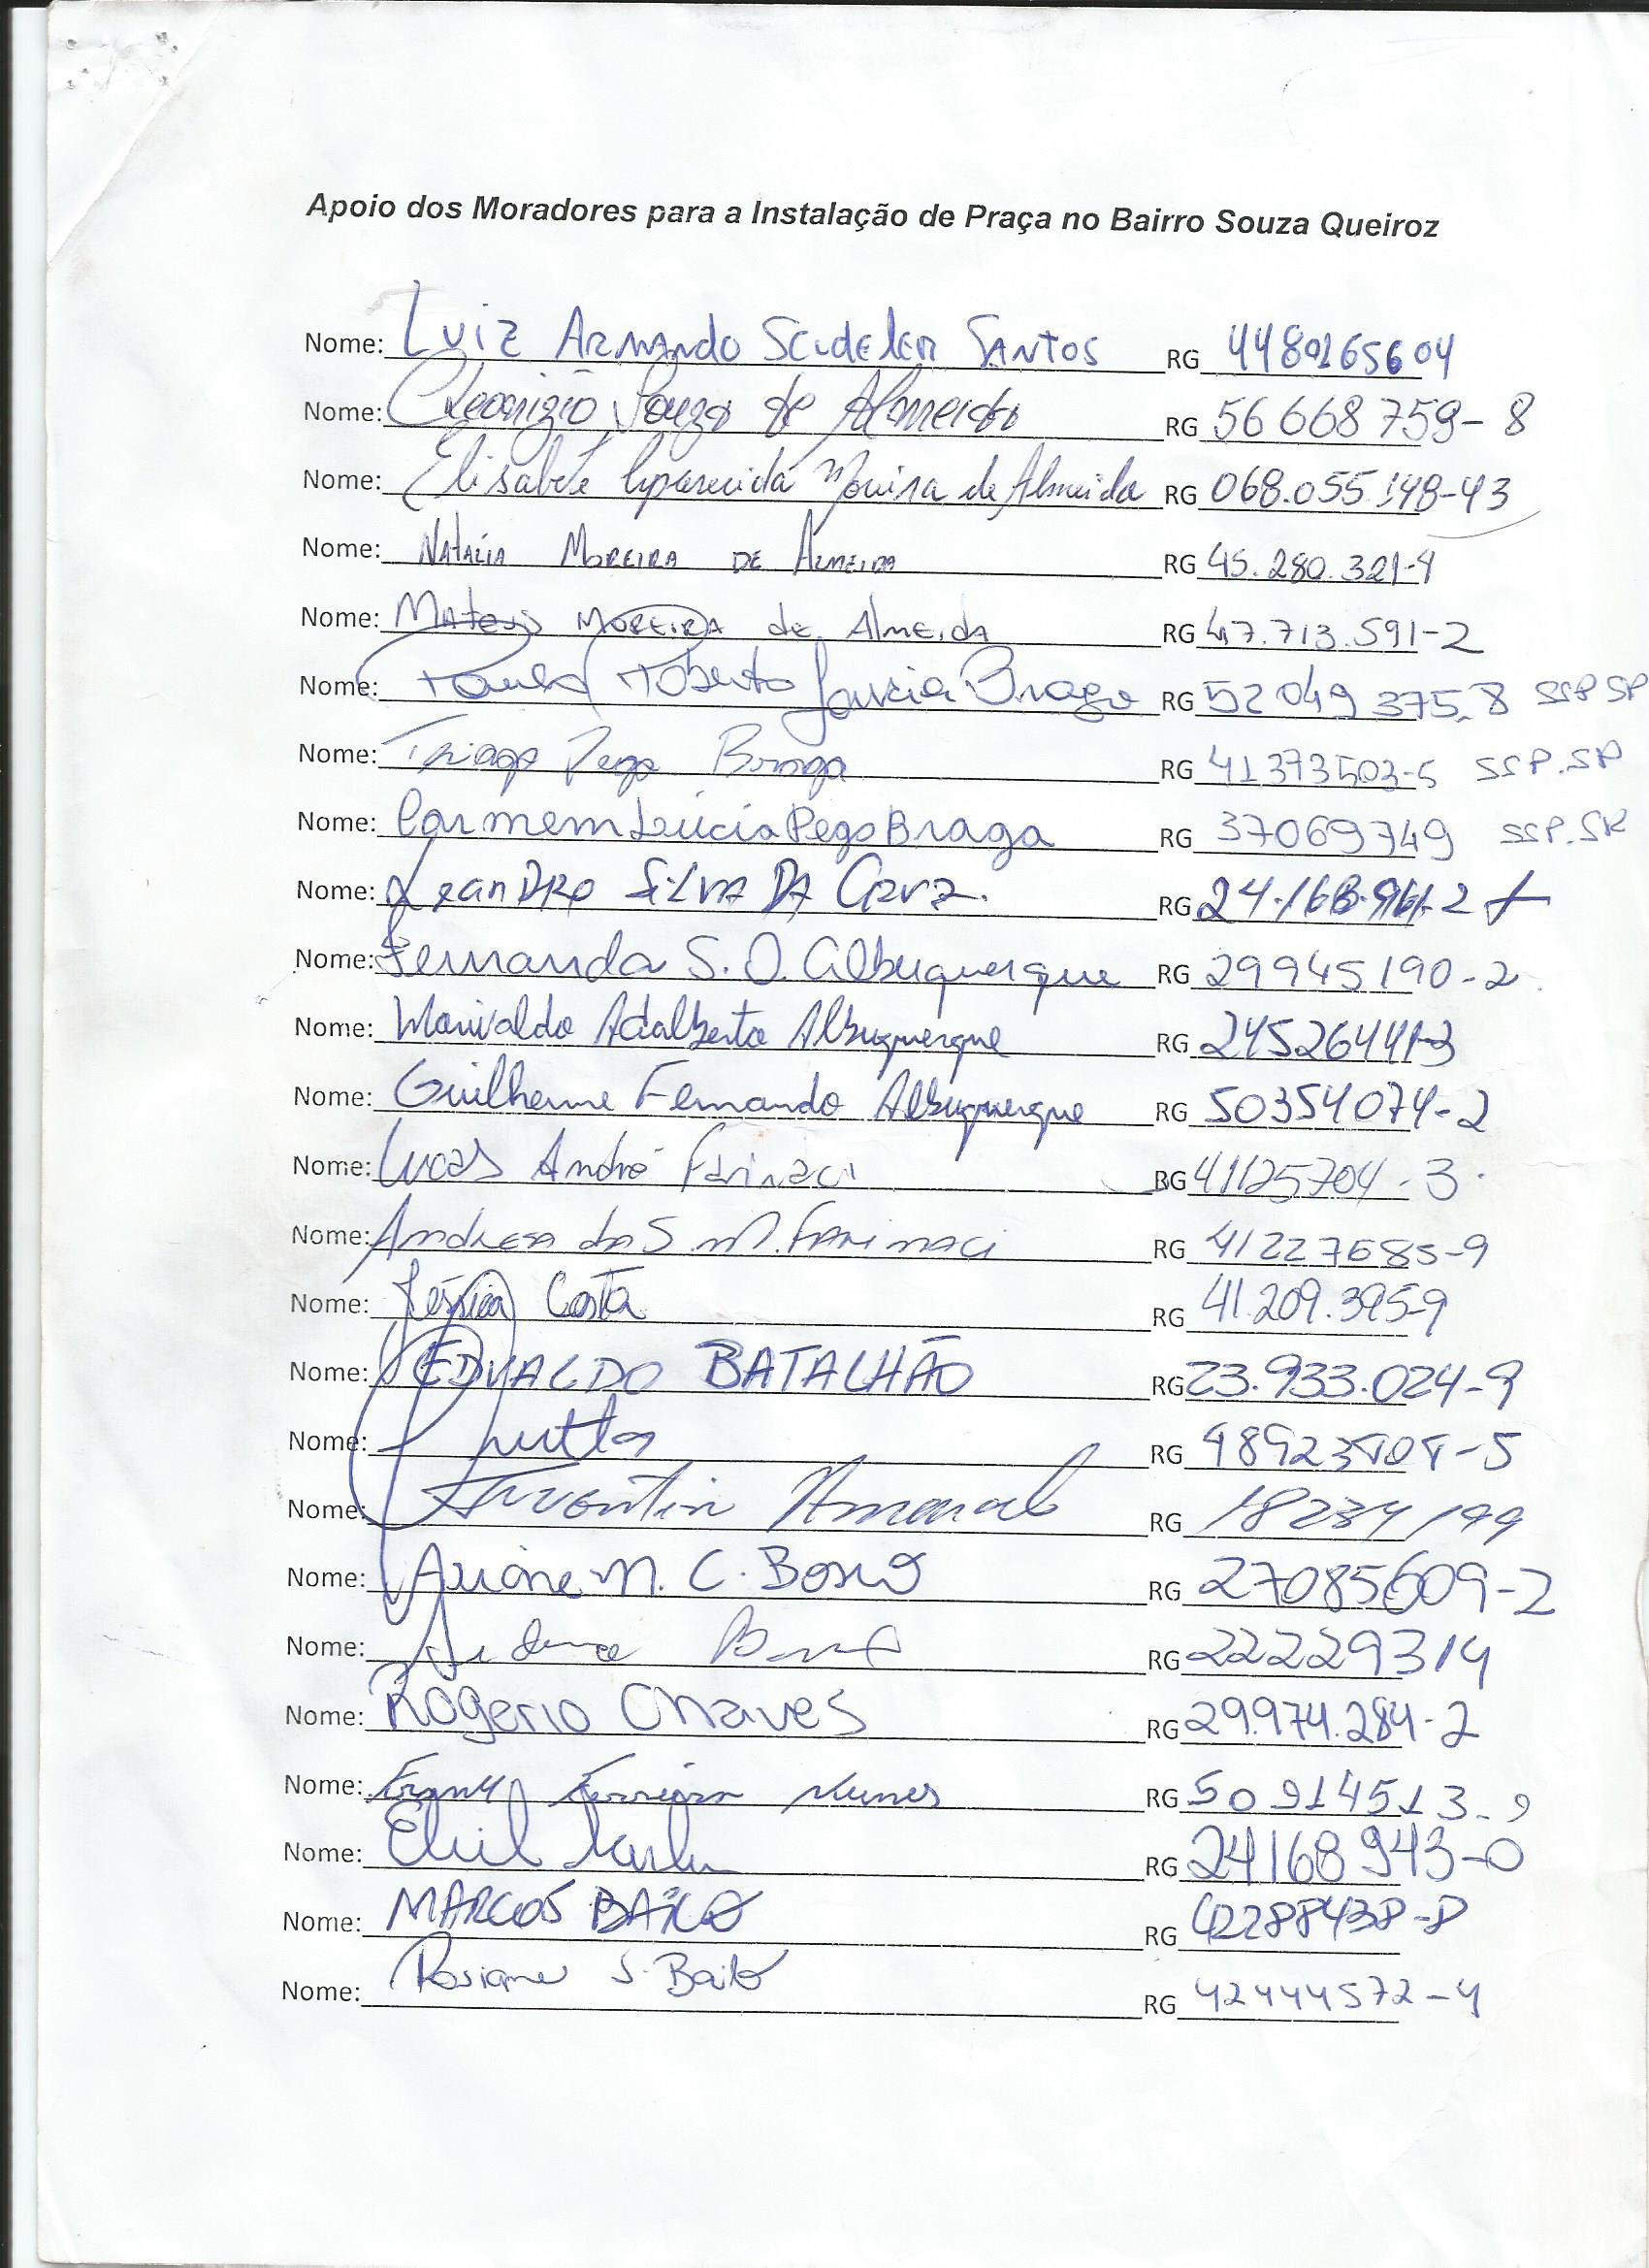 Apoio dos Moradores para a Instalação de Praça no Bairro Souza Queiroz
Nome: Luiz Armando Scudeler Santos RG 4480165604
Nome: Souza de Almeida RG 56 668 759-8
Nome: Elisabete Aparecida Moreira de Almeida RG 068.055.148-43
Nome: Natalia Moreira de Almeida RG 45.280.321-4
Nome: Mateus Moreira de Almeida RG 47.713.591-2
Nome: Paulo Roberto Garcia Braga RG 52 049 375,8 SSP SP
Nome: Thiago Pego Braga RG 41373503-5 SSP.SP
Nome: Carmem Lúcia Pego Braga RG 37069749 SSP.SP
Nome: Leandro Silva da Cruz. RG
Nome: Fernanda S. O. Albuquerque RG 29945190-2
Nome: Marivaldo Adalberto Albuquerque RG 24526441-3
Nome: Guilherme Fernando Albuquerque RG 50354074-2
Nome: Lucas André Farinaci RG 41125704-3
Nome: Andresa da S. M. Farinaci RG 41227685-9
Nome: Jéssica Costa RG 41.209.395-9
Nome: EDVALDO BATALHÃO RG 23.933.024-9
Nome: RG
Nome: Amaral RG
Nome: Ariane M. C. RG 27085609-2
Nome: RG 222229314
Nome: Rogerio Chaves RG 29.974.284-2
Nome: Ferreira Nunes RG 50 914513-9
Nome: RG 24168943-0
Nome: MARCOS BAILO RG 42288438-8
Nome: Rosiane S. Bailo RG 42444572-4